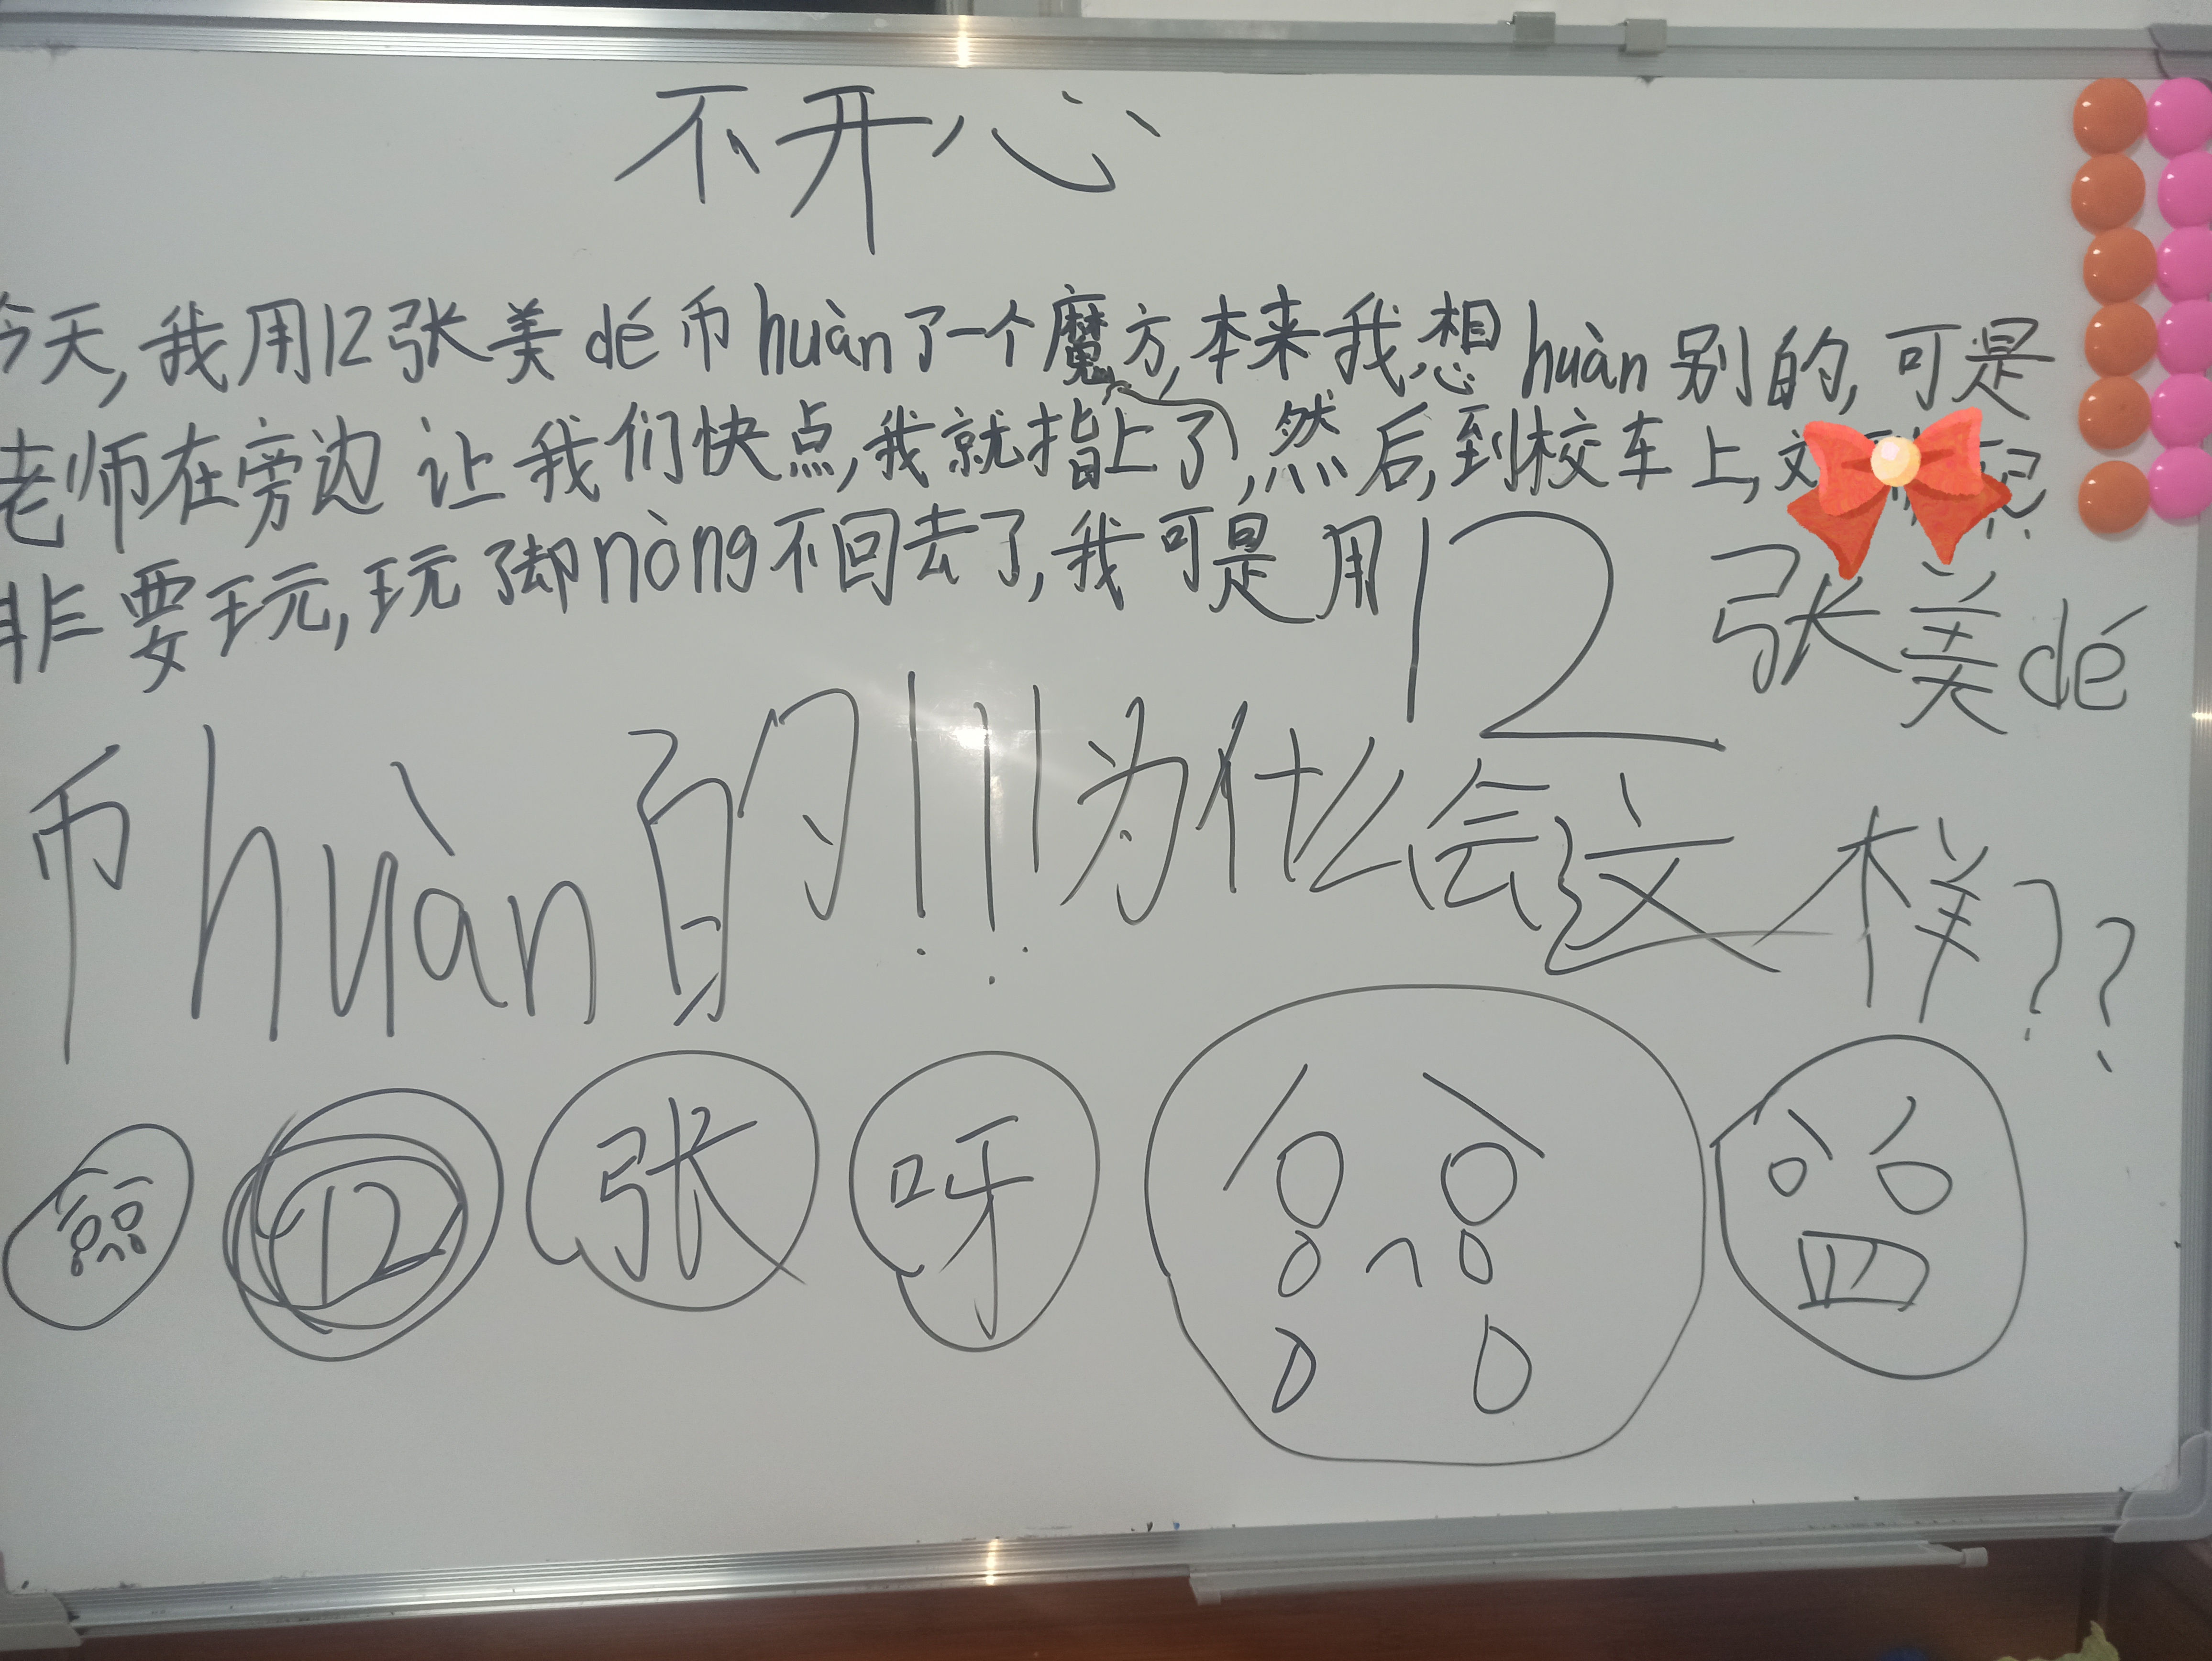 不开心
今天,我用12张美dé币huàn了一个魔方,本来我想huàn别的,可是
老师在旁边让我们快点,我就指上了,然后,到校车上,
非要玩,玩了却nòng不回去了,我可是用12张美dé
币huàn的!!!为什么会这样??
12 张 呀